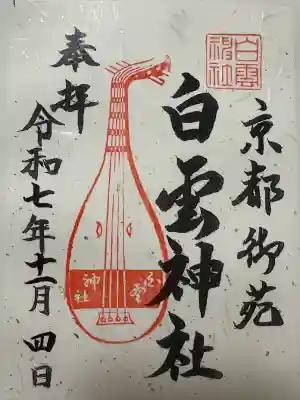 京都御苑
白雲
神社
白雲神社
白雲
神社
奉拝
令和七年十一月四日